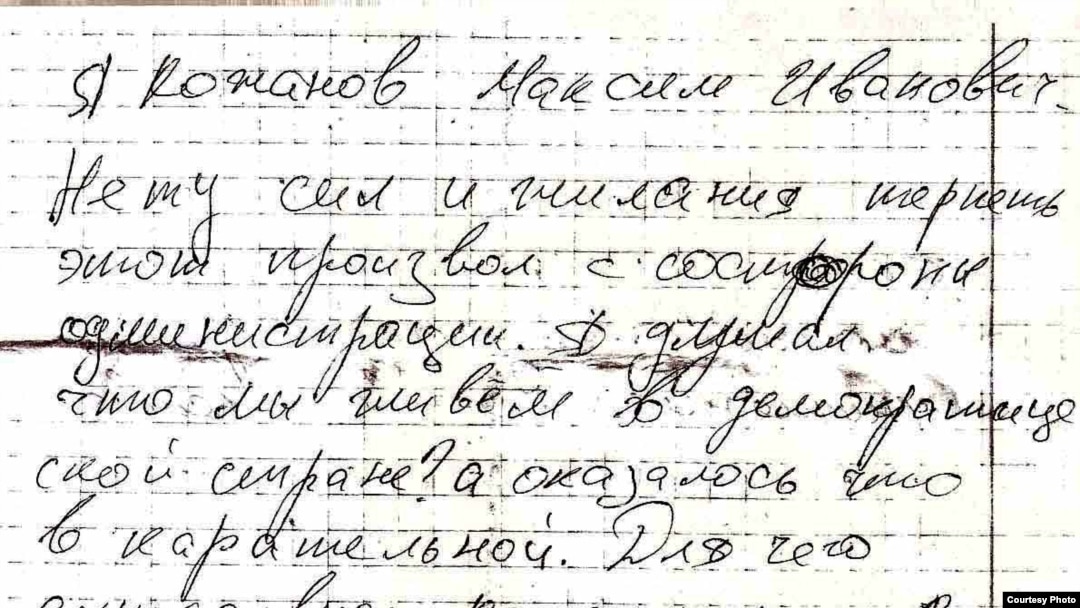 Я Кожанов Максим Иванович.
Нету сил и жилания терпеть
этот произвол с состороны
администрации. Я думал
что мы живём в демократице
ской стране? а оказалось что
в карательной. Для чего
Courtesy Photo